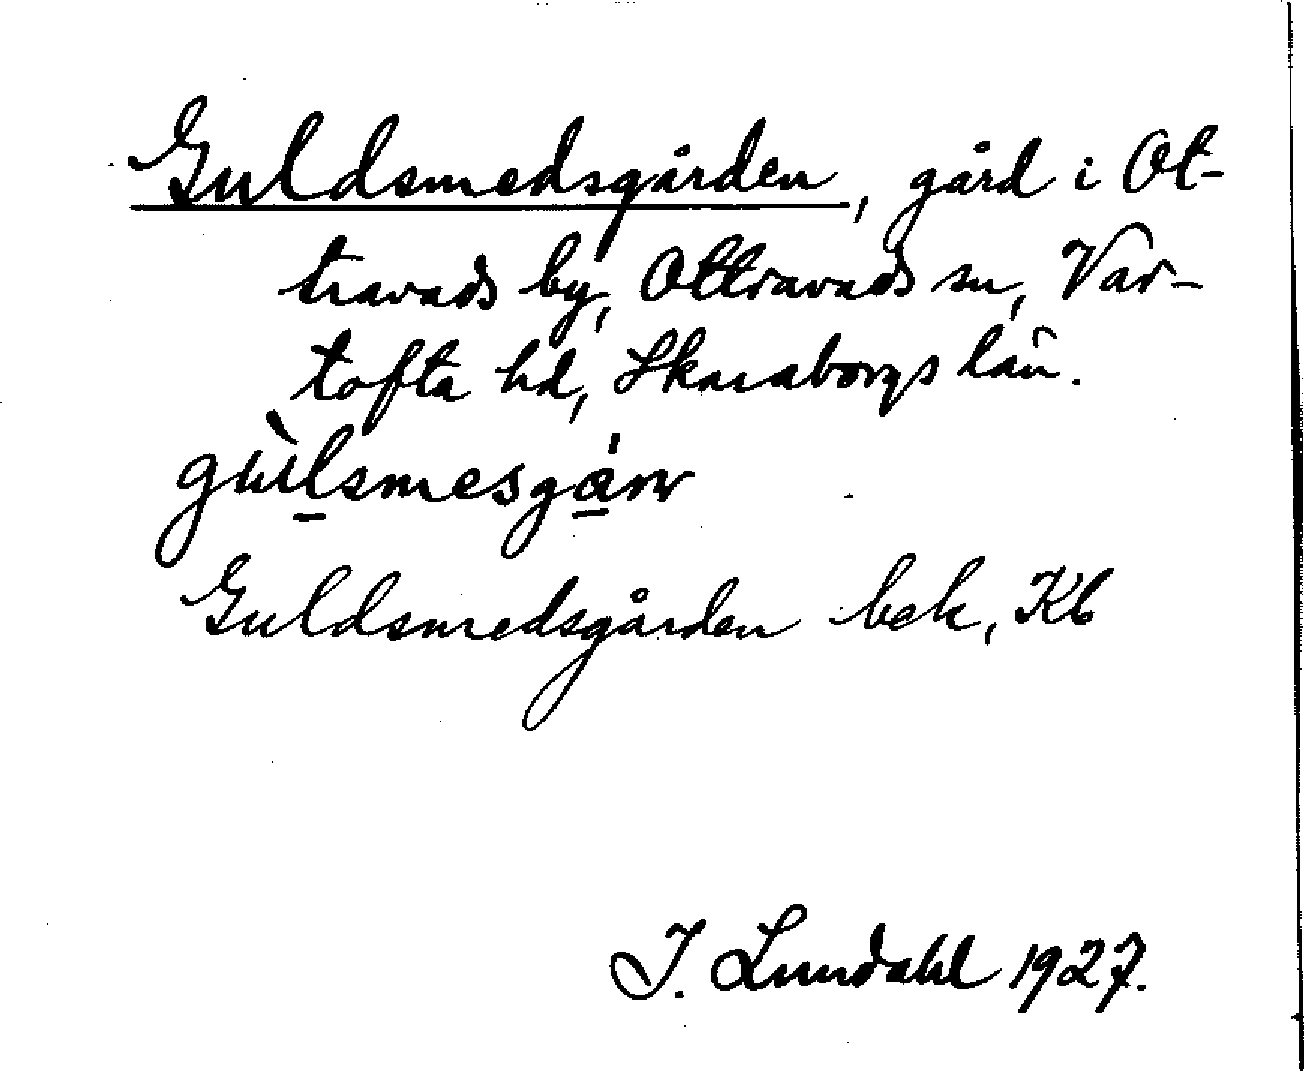 Guldsmedsgården, gård i Ot-
travads by, Ottravads sn, Var-
tofta hd, Skaraborgs län.
gùlsmesgá̱rn
Guldsmedsgården bek, Kb
I. Lundahl 1927.